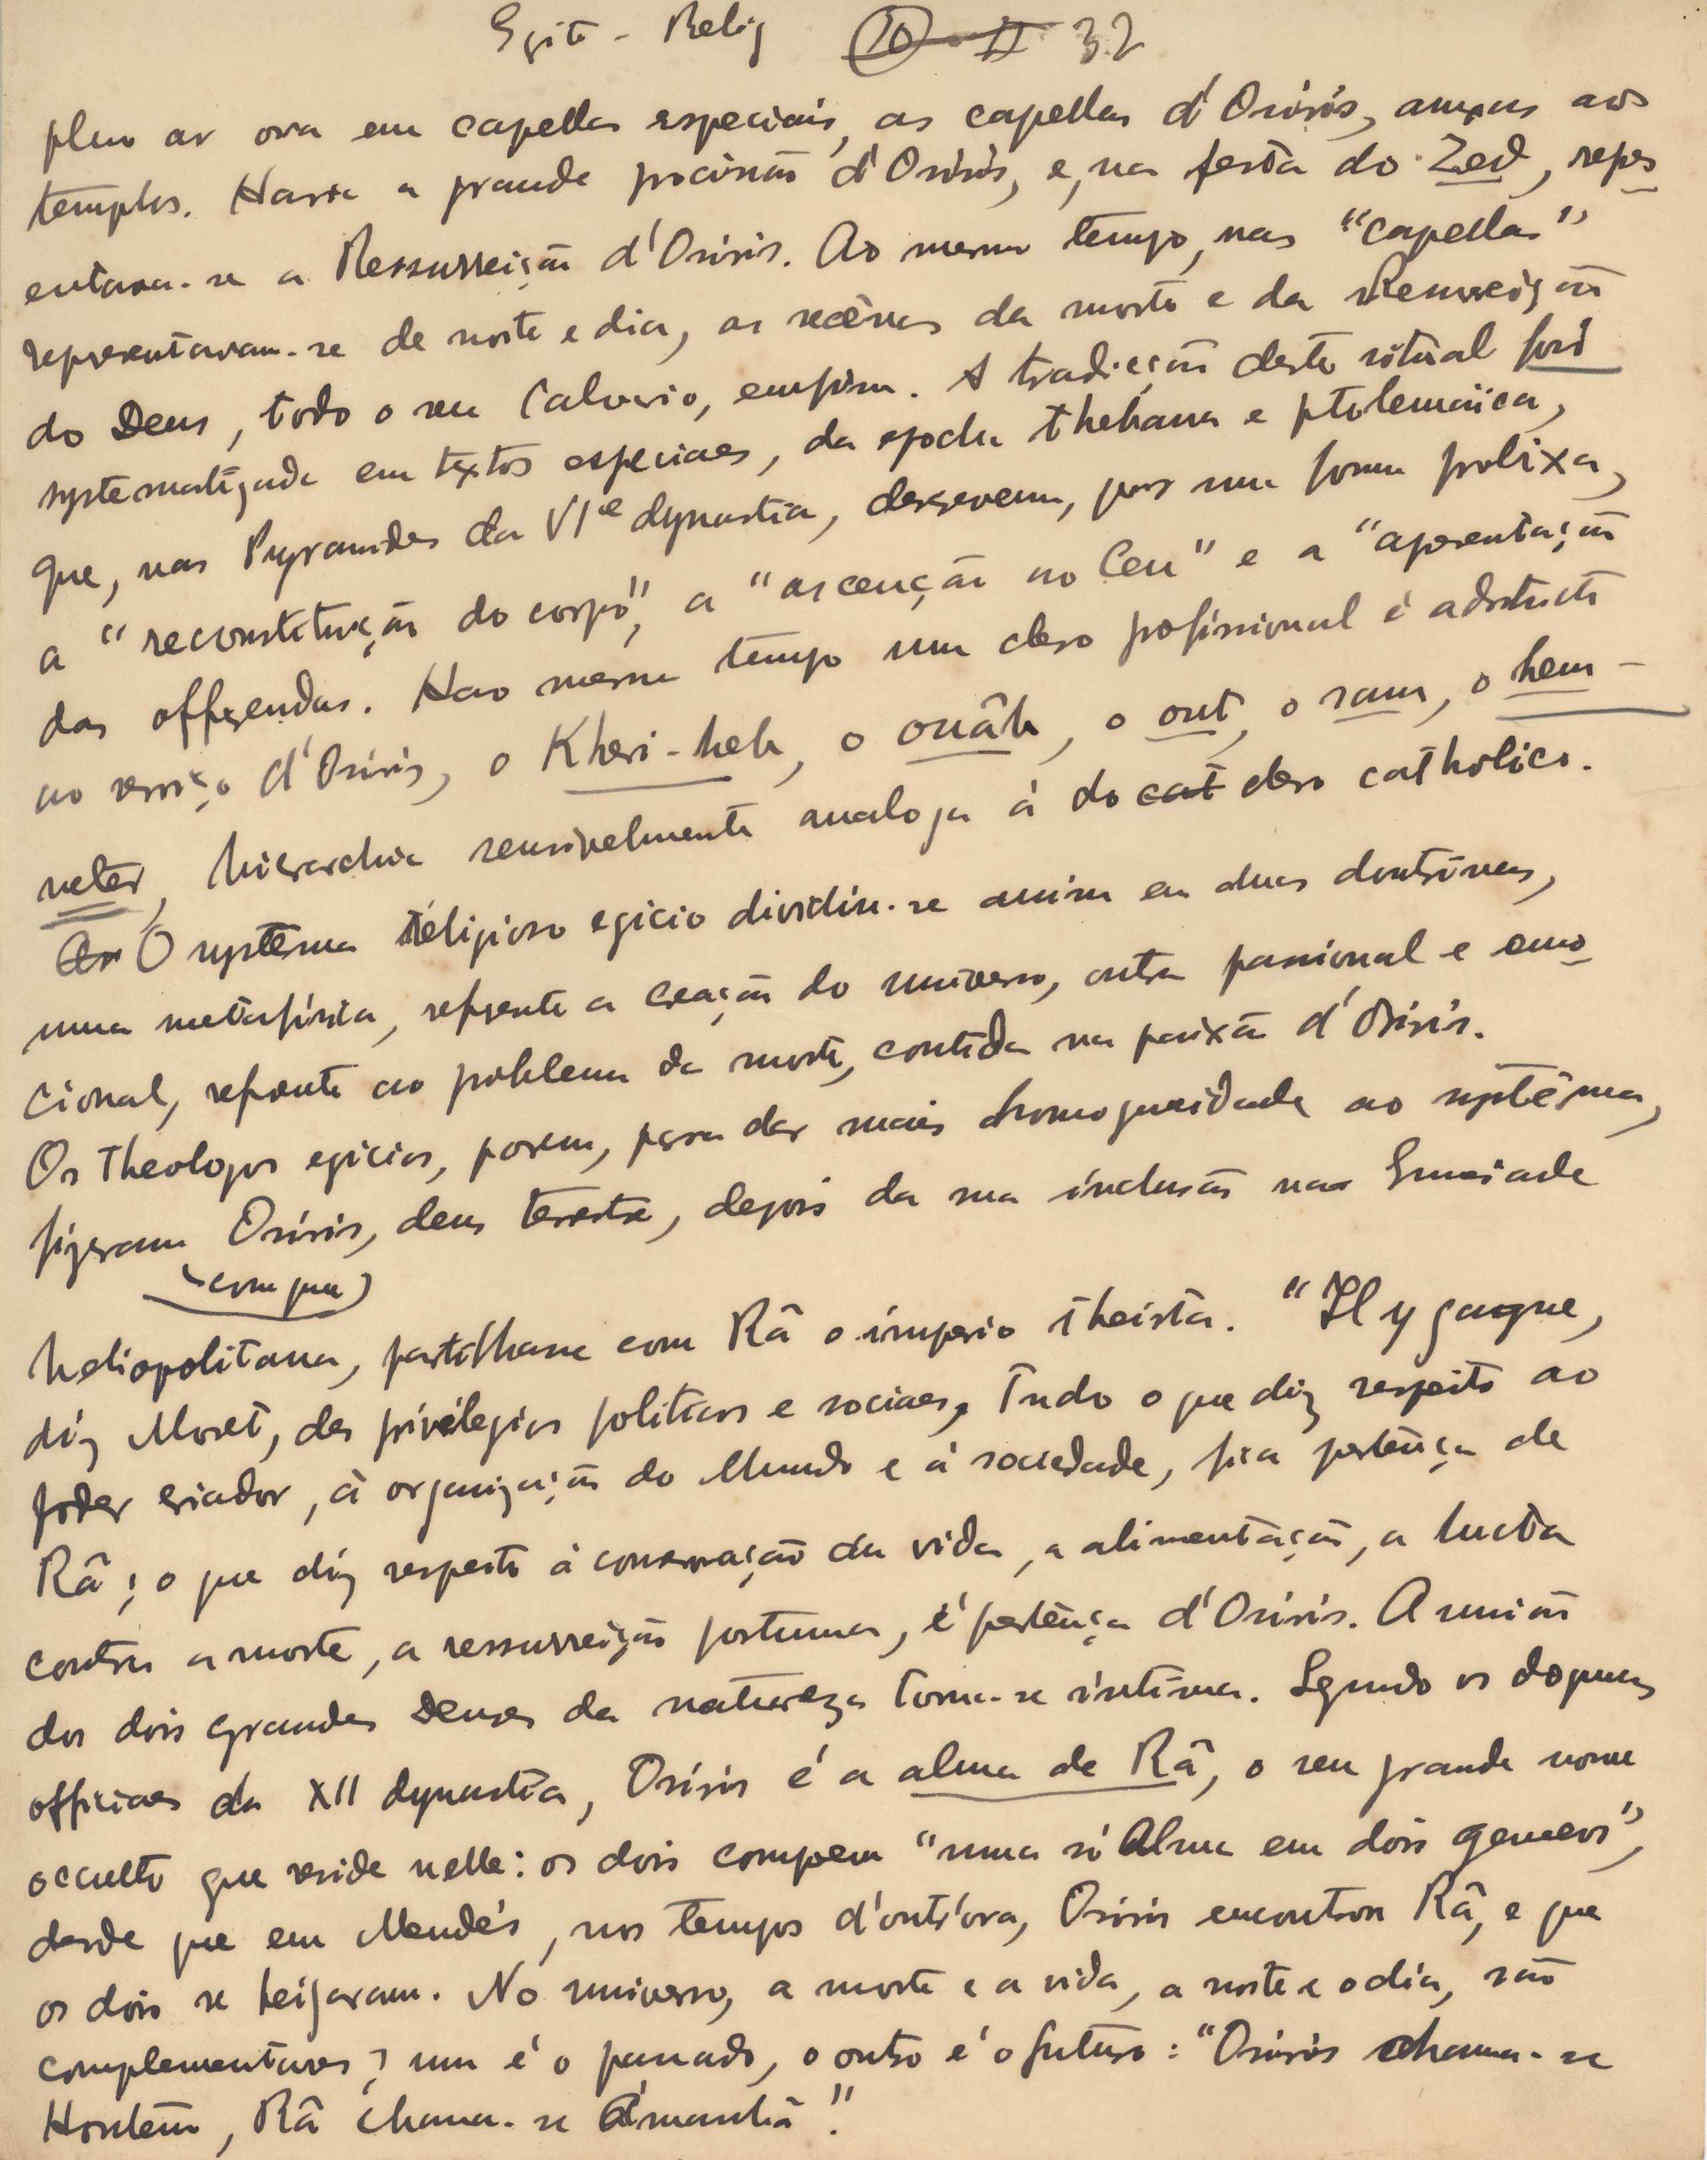 Egito - Relig 10 - II 32
pleno ar ora em capellas especiais, as capellas d'Osiris, anexas aos
templos. Havia a grande procissão d'Osiris, e, na festa do Zed, repres
entava-se a Ressurreição d'Osiris. Ao mesmo tempo, nas "capellas"
representavam-se de noite e dia, as scênas da morte e da Ressurreição
do Deus, todo o seu Calvario, emfim. A tradicção deste ritual foi
systematizada em textos especiaes, da epocha thebana e ptolemaïca,
que, nas Pyramides da VIe dynastia, descrevem, por uma forma prolixa,
a "reconstituição do corpo", a "ascenção ao Ceu" e a "apresentação
das offrendas. Hao mesmo tempo um clero profissional é adstricto
ao serviço d'Osiris, o Kheri-heb, o ouâb, o out, o sam, o hem-
neter, hierarchia sensivelmente analoga á do cat clero catholico.
O systema religioso egicio dividiu-se assim em duas doutrinas,
uma metafisica, referente a creação do universo, outra passional e emo
cional, referente ao problema da morte, contida na paixão d'Osiris.
Os Theologos egicios, porem, para dar mais homogeneidade ao systêma,
fizeram com que Osiris, deus terrestre, depois da sua inclusão na Enneiade
heliopolitana, partilhasse com Râ o imperio theista. "Il y gagne,
diz Moret, des privilegios politicos e sociaes. Tudo o que diz respeito ao
poder criador, á organização do Mundo e á sociedade, fica pertença de
Râ; o que diz respeito á conservação da vida, a alimentação, a lucta
contra a morte, a ressurreição postuma, é pertença d'Osiris. A união
dos dois grandes Deuses da natureza torna-se intima. Segundo os dogmas
officiaes da XII dynastia, Osiris é a alma de Râ, o seu grande nome
occulto que reside nelle: os dois compoem "uma só Alma em dois gemeos",
desde que em Mendés, nos tempos d'outr'ora, Osiris encontrou Râ, e que
os dois se beijaram. No universo, a morte e a vida, a noite e o dia, são
complementares; um é o passado, o outro é o futuro: "Osiris chama-se
Hontem, Râ chama-se Amanhã".